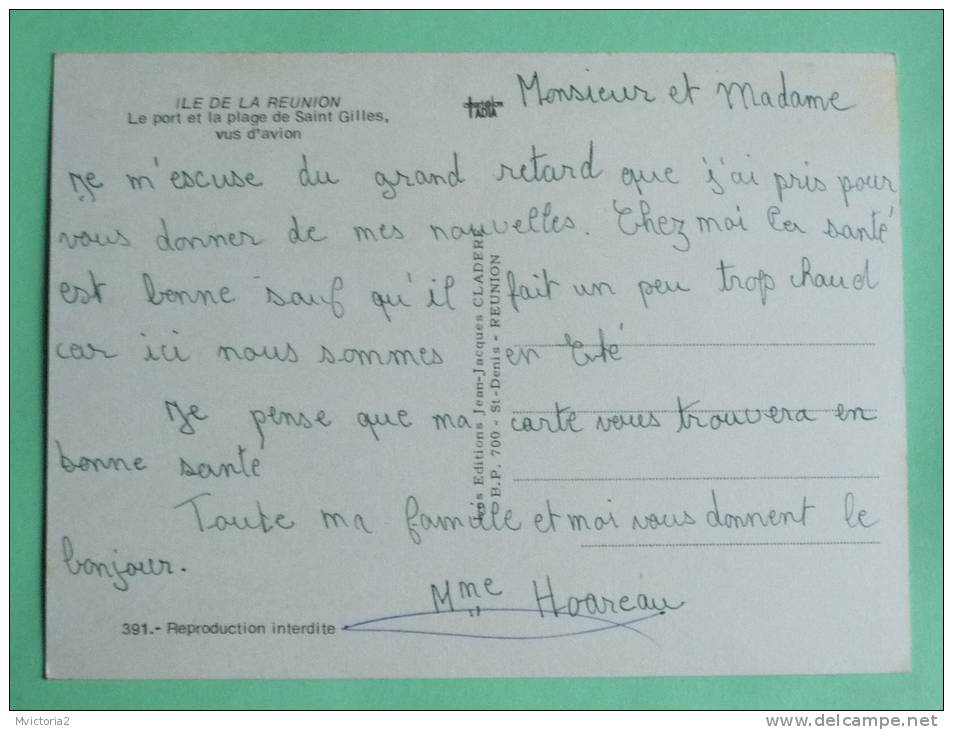 ILE DE LA REUNION
Le port et la plage de Saint Gilles,
vus d'avion
Monsieur et Madame
Je m'escuse du grand retard que j'ai pris pour
vous donner de mes nouvelles. Chez moi la santé
est bonne sauf qu'il fait un peu trop chaud
car ici nous sommes en Eté
Je pense que ma carte vous trouvera en
bonne santé
Toute ma famille et moi vous donnent le
bonjour.
Mme Hoareau
Les Editions Jean-Jacques CLADERE
B.P. 700 - St-Denis - REUNION
391.- Reproduction interdite
Mvictoria2
www.delcampe.net